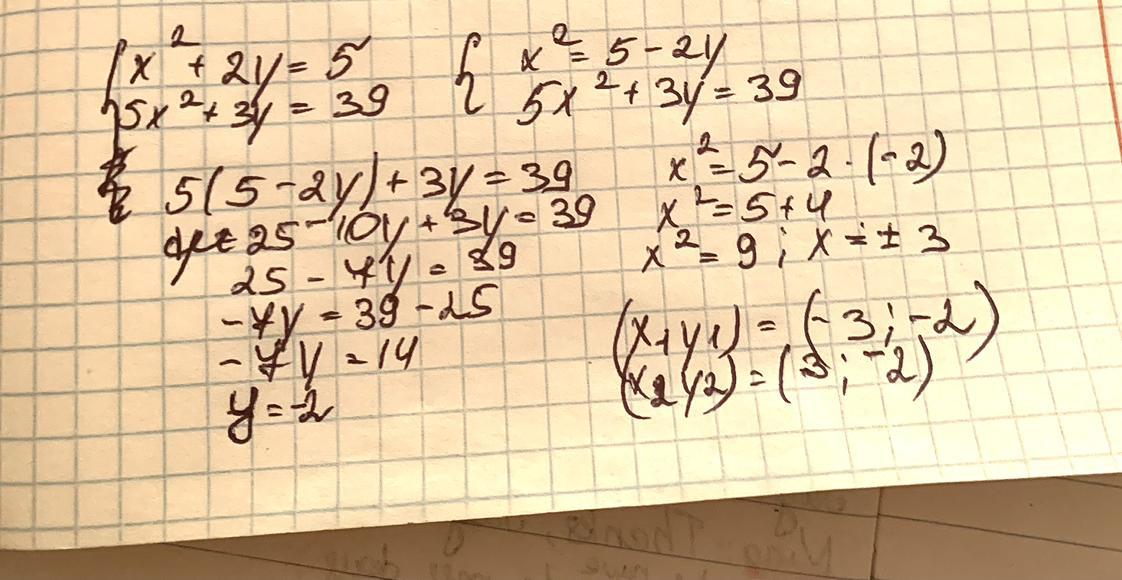 { x² + 2y = 5
5x² + 3y = 39
{ x² = 5 - 2y
5x² + 3y = 39
5(5 - 2y) + 3y = 39
25 - 10y + 3y = 39
25 - 7y = 39
-7y = 39 - 25
-7y = 14
y = -2
x² = 5 - 2 · (-2)
x² = 5 + 4
x² = 9 ; x = ± 3
(x1 y1) = (-3 ; -2)
(x2 y2) = (3 ; -2)